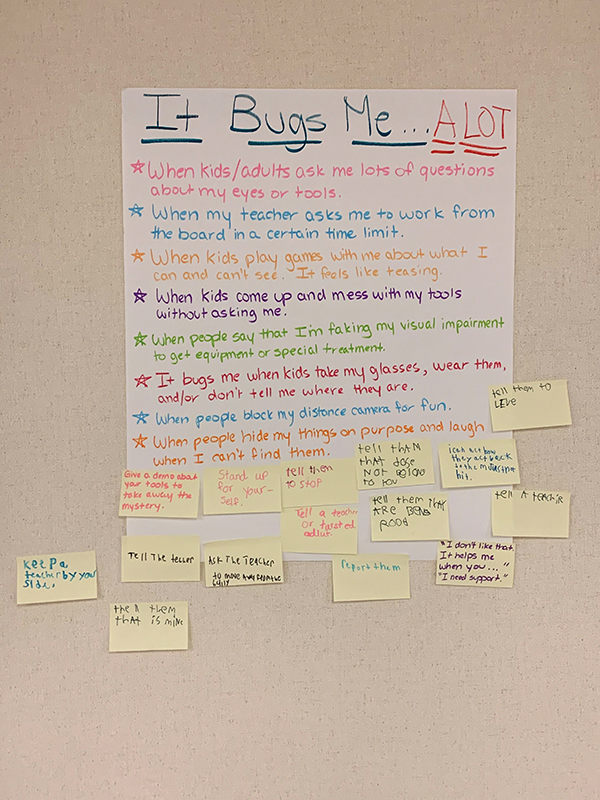 It Bugs Me... A LOT
When kids/adults ask me lots of questions
about my eyes or tools.
When my teacher asks me to work from
the board in a certain time limit.
When kids play games with me about what I
can and can't see. It feels like teasing.
When kids come up and mess with my tools
without asking me.
When people say that I'm faking my visual impairment
to get equipment or special treatment.
It bugs me when kids take my glasses, wear them,
and/or don't tell me where they are.
When people block my distance camera for fun.
When people hide my things on purpose and laugh
when I can't find them.
tell them to
LEVE
Give a demo about
your tools to
take away the
mystery.
Stand up
for your-
self.
tell them
to STOP
tell tham
that dose
Not
to you
they act back
to the
hit.
Tell a teacher
or trusted
adlut.
tell them thay
ARE
rood
tell A teacher
keep a
teacher by you
side.
Tell The
ASK The Teacher
to move away
report them
"I don't like that.
It helps me
when you..."
"I need support."
them
that is mine